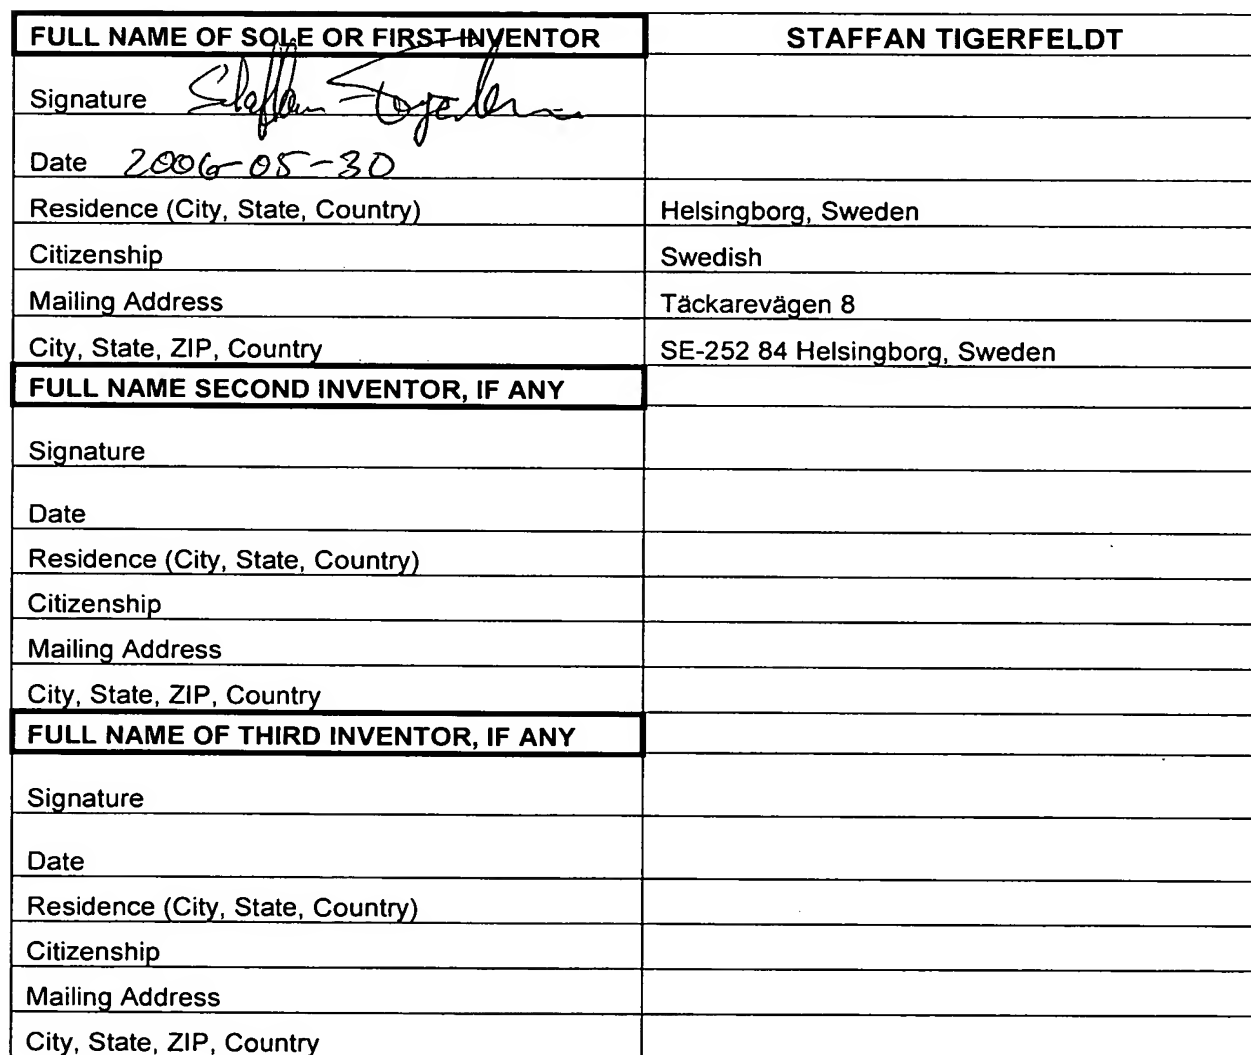 FULL NAME OF SOLE OR FIRST INVENTOR STAFFAN TIGERFELDT
Signature Staffan Tigerfeldt
Date 2006-05-30
Residence (City, State, Country) Helsingborg, Sweden
Citizenship Swedish
Mailing Address Täckarevägen 8
City, State, ZIP, Country SE-252 84 Helsingborg, Sweden
FULL NAME SECOND INVENTOR, IF ANY
Signature
Date
Residence (City, State, Country)
Citizenship
Mailing Address
City, State, ZIP, Country
FULL NAME OF THIRD INVENTOR, IF ANY
Signature
Date
Residence (City, State, Country)
Citizenship
Mailing Address
City, State, ZIP, Country